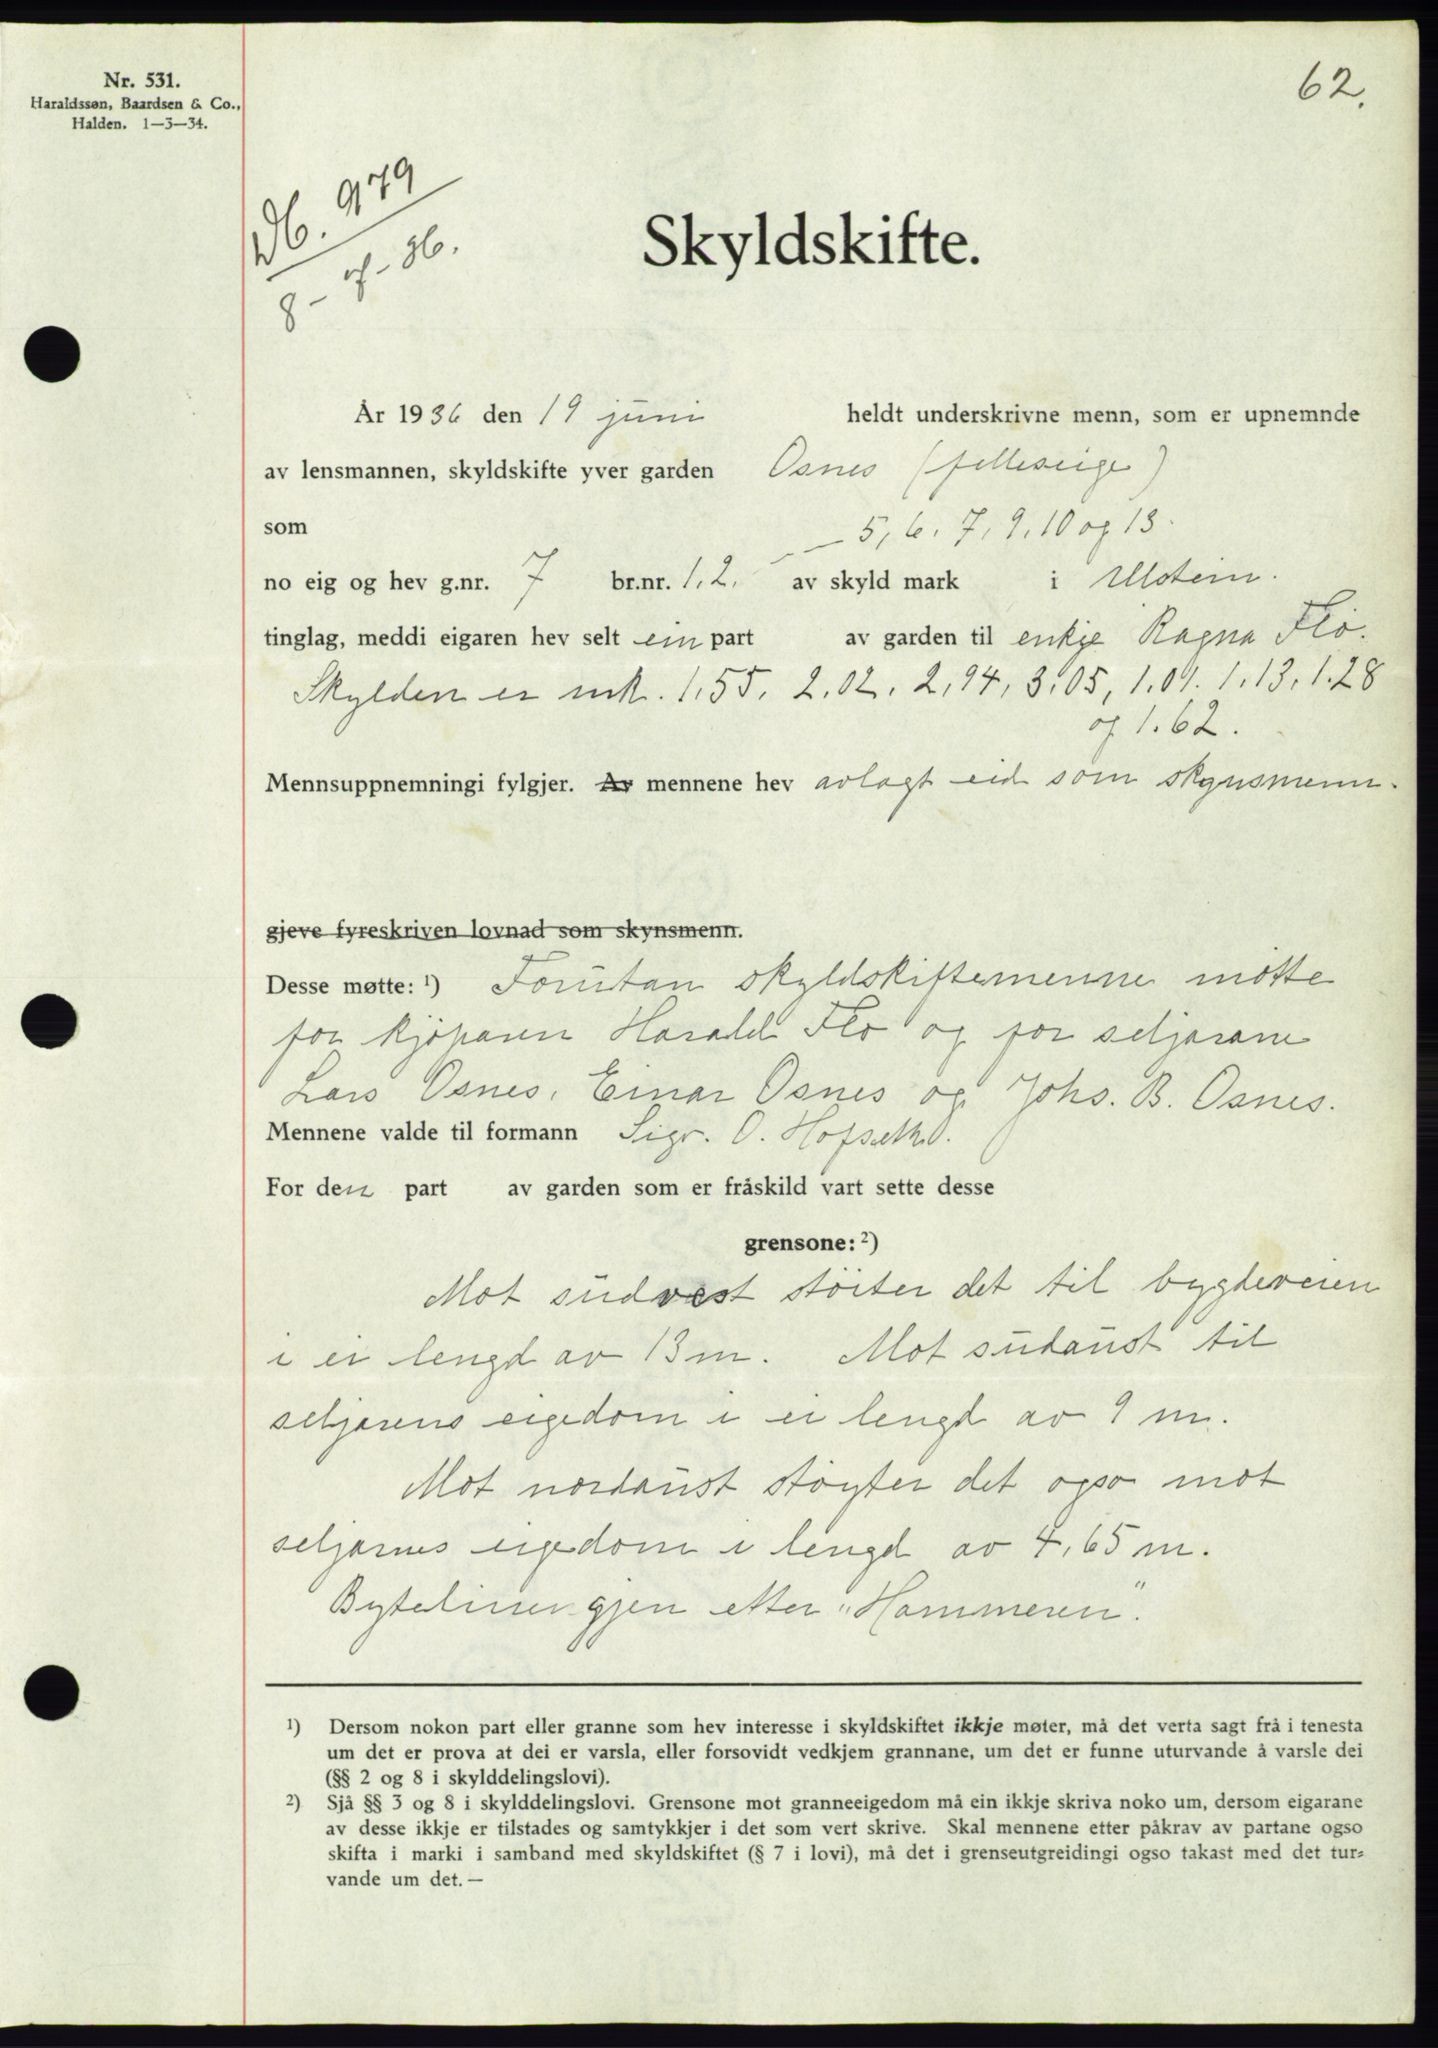 62.
Nr. 531.
Haraldssøn, Baardsen & Co.,
Halden. 1—3—34.
Db. 979
8- - 36.
Skyldskifte.
År 1936 den 19 juni heldt underskrivne menn, som er upnemnde
av lensmannen, skyldskifte yver garden Osnes (felleseige)
som 5, 6, 7, 9, 10 og 13.
no eig og hev g.nr. 7 br.nr. 1, 2, av skyld mark i Ulstein.
tinglag, meddi eigaren hev selt ein part av garden til enkje Ragna Flø.
Skylden er mk. 1,55, 2,02, 2,94, 3,05, 1,01, 1,13, 1.28
og 1.62.
Mennsuppnemningi fylgjer. Av mennene hev avlagt eid som skynsmenn.
gjeve fyreskriven lovnad som skynsmenn.
Desse møtte: ¹) Forutan skyldskiftemenne møtte
for kjøparen Harald Flø og for seljarane
Lars Osnes, Einar Osnes og Johs. B. Osnes.
Mennene valde til formann Sigr. O. Hofseth.
For den part av garden som er fråskild vart sette desse
grensone: ²)
Mot sudvest støiter det til bygdeveien
i ei lengd av 13 m. Mot sudaust til
seljarens eigedom i ei lengd av 9 m.
Mot nordaust støyter det ogso mot
seljarnes eigedom i lengd av 4,65 m.
Bytelinen gjen etter "Hammeren".
¹) Dersom nokon part eller granne som hev interesse i skyldskiftet ikkje møter, må det verta sagt frå i tenesta
um det er prova at dei er varsla, eller forsovidt vedkjem grannane, um det er funne uturvande å varsle dei
(§§ 2 og 8 i skylddelingslovi).
²) Sjå §§ 3 og 8 i skylddelingslovi. Grensone mot granneeigedom må ein ikkje skriva noko um, dersom eigarane
av desse ikkje er tilstades og samtykkjer i det som vert skrive. Skal mennene etter påkrav av partane ogso
skifta i marki i samband med skyldskiftet (§ 7 i lovi), må det i grenseutgreidingi ogso takast med det tur-
vande um det. —